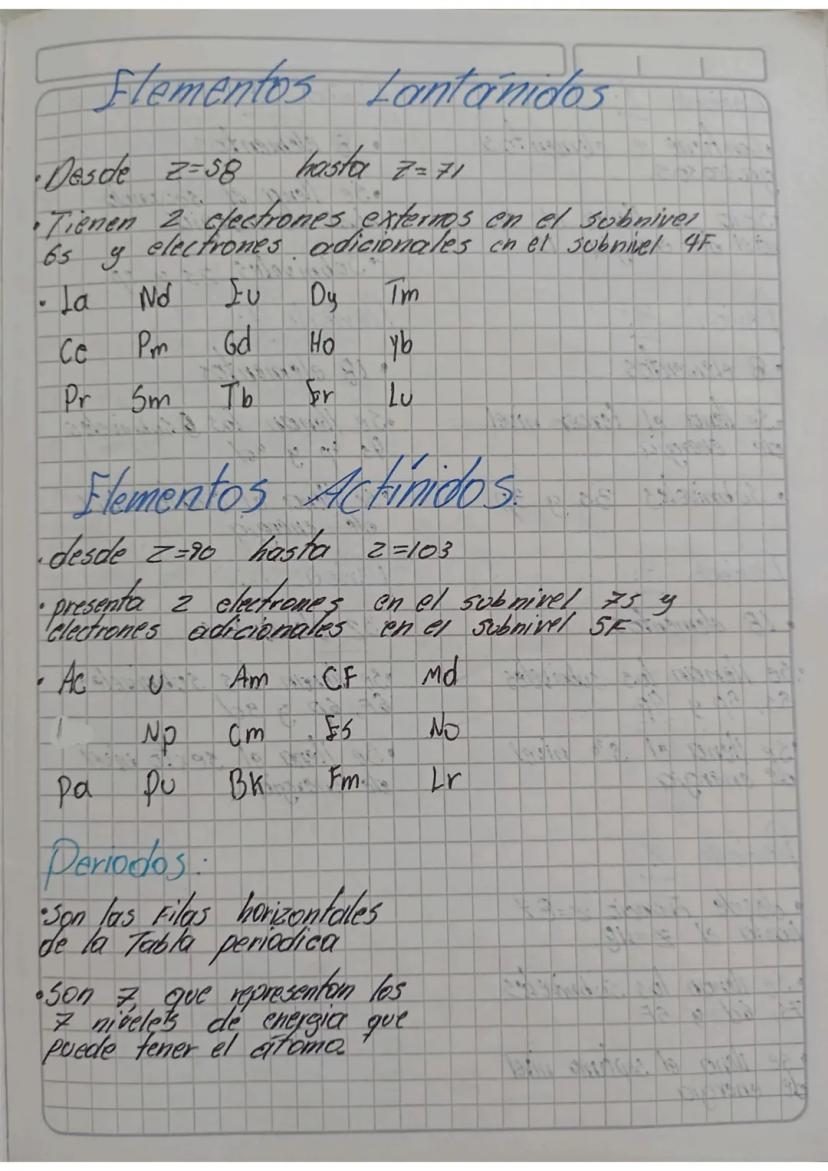 Elementos Lantánidos
• Desde Z=58 hasta Z=71
• Tienen 2 electrones externos en el subnivel
6s y electrones adicionales en el subnivel 4F
• La Nd Eu Dy Tm
Ce Pm Gd Ho Yb
Pr Sm Tb Er Lu
Elementos Actínidos.
• desde Z=90 hasta Z=103
• presenta 2 electrones en el subnivel 7s y
electrones adicionales en el subnivel 5F
• Ac U Am CF Md
Np Cm Es No
Pa Pu BK Fm Lr
Periodos:
• Son las Filas horizontales
de la Tabla periódica
• Son 7, que representan los
7 nivelels de energia que
puede tener el átomo.